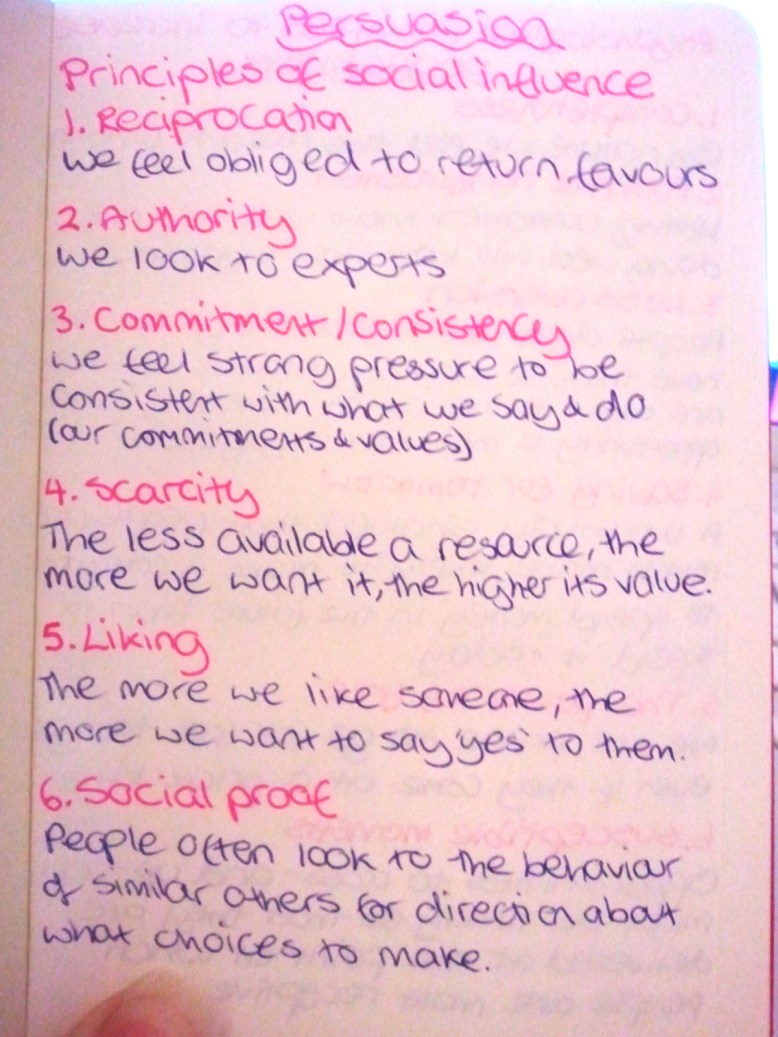 Persuasion
Principles of social influence
1. Reciprocation
we feel obliged to return favours
2. Authority
we look to experts
3. Commitment/Consistency
we feel strong pressure to be
consistent with what we say & do
(our commitments & values)
4. Scarcity
The less available a resource, the
more we want it, the higher its value.
5. Liking
The more we like someone, the
more we want to say 'yes' to them.
6. Social proof
People often look to the behaviour
of similar others for direction about
what choices to make.